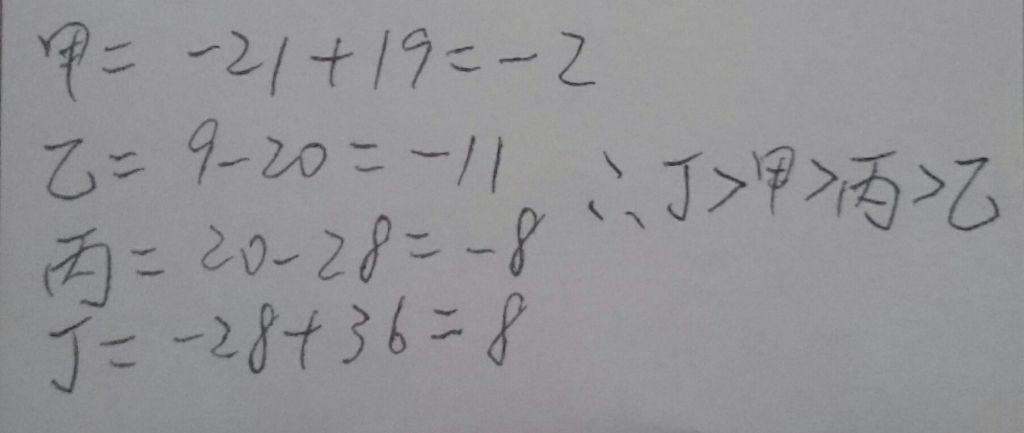 甲= -21+19=-2
乙= 9-20=-11
丙= 20-28=-8
丁= -28+36=8
∴丁>甲>丙>乙